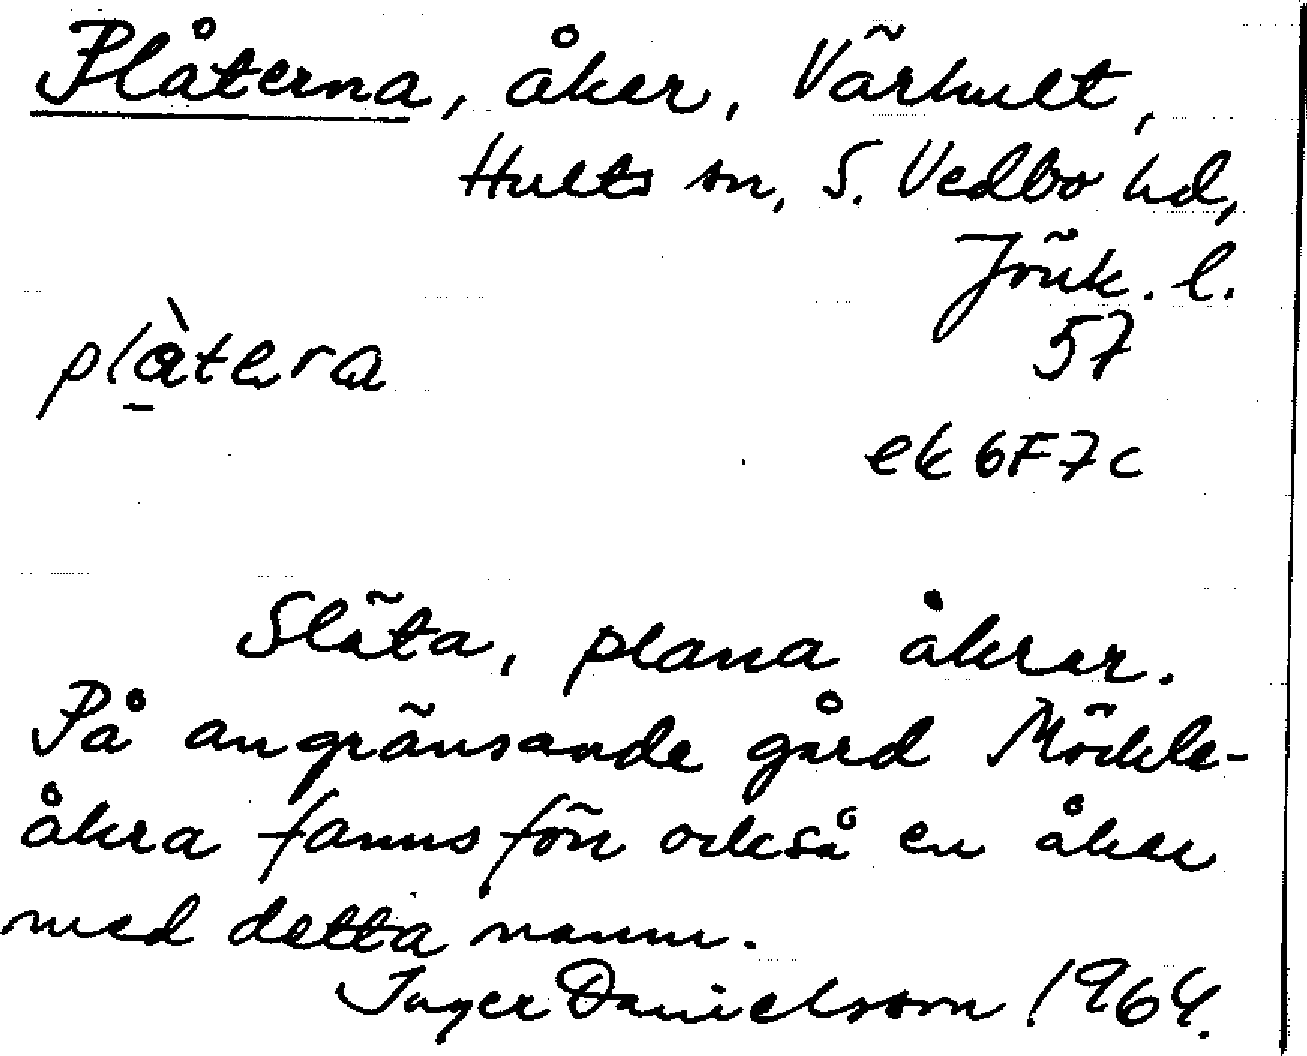 Plåterna, åker, Värhult,
Hults sn, S. Vedbo hd,
Jönk. l.
plàtera 57
ek 6F7c
Släta, plana åkrar.
På angränsande gård Möckle-
åkra fanns förr också en åker
med detta namn.
Inger Danielsson 1964.